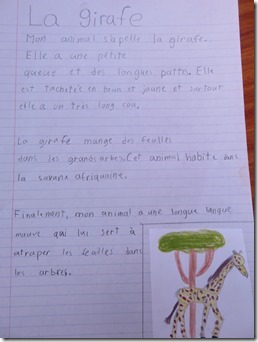 La girafe
Mon animal s'apelle la girafe.
Elle a une petite
queue et des longues pattes. Elle
est tachetée en brun et jaune et surtout
elle a un très long cou.
La girafe mange des feuilles
dans les grands arbres. Cet animal habite dans
la savane afriquaine.
Finalement, mon animal a une longue langue
mauve qui lui sert à
atraper les feuilles dans
les arbres.